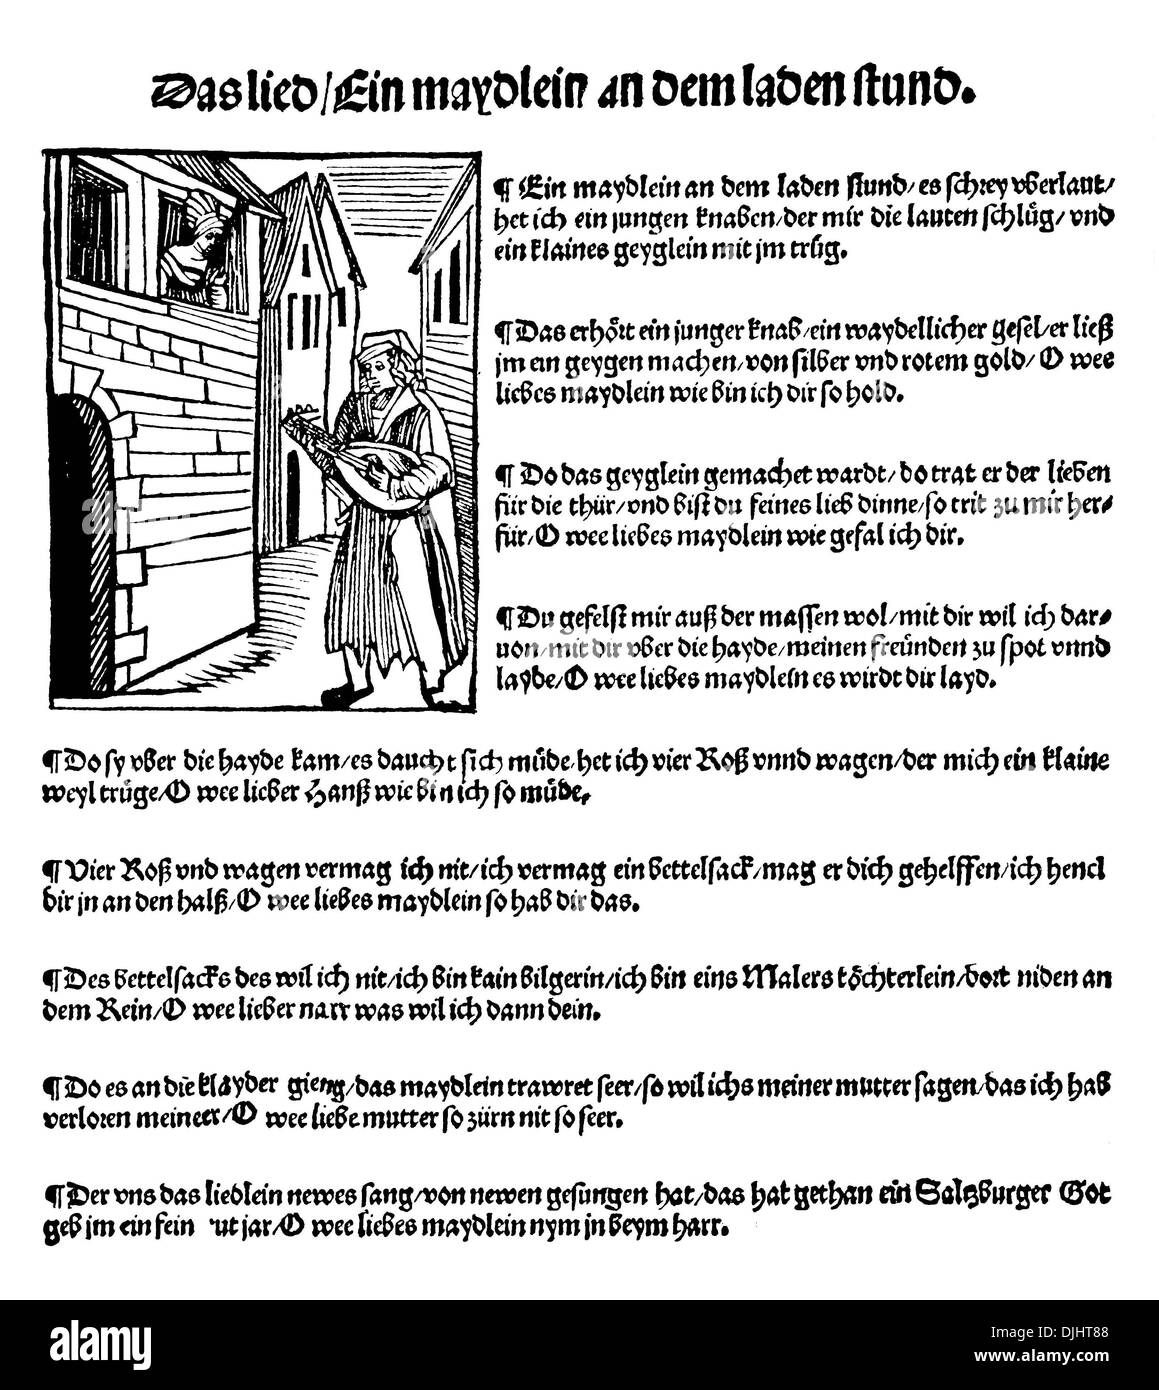 Das lied/Ein maydlein an dem laden stund.
¶ Ein maydlein an dem laden stund/es schrey vberlaut/
het ich ein jungen knaben/der mir die lauten schlüg/vnd
ein klaines geyglein mit jm trüg.
¶ Das erhört ein junger knab/ein waydellicher gesel/er ließ
jm ein geygen machen/von silber vnd rotem gold/O wee
liebes maydlein wie bin ich dir so hold.
¶ Do das geyglein gemachet wardt/do trat er der lieben
für die thür/vnd bist du feines lieb dinne/so trit zu mir her/
für/O wee liebes maydlein wie gefal ich dir.
¶ Du gefelst mir auß der massen wol/mit dir wil ich dar/
uon/mit dir vber die hayde/meinen freünden zu spot vnnd
layde/O wee liebes maydlein es wirdt dir layd.
¶ Do sy vber die hayde kam/es daucht sich müde/het ich vier Roß vnnd wagen/der mich ein klaine
weyl trüge/O wee lieber Hanß wie bin ich so müde.
¶ Vier Roß vnd wagen vermag ich nit/ich vermag ein bettelsack/mag er dich gehelffen/ich henck
dir jn an den halß/O wee liebes maydlein so hab dir das.
¶ Des bettelsacks des wil ich nit/ich bin kain bilgerin/ich bin eins Malers töchterlein/dort niden an
dem Rein/O wee lieber narr was wil ich dann dein.
¶ Do es an die klayder gieng/das maydlein trawret seer/so wil ichs meiner mutter sagen/das ich hab
verloren mein eer/O wee liebe mutter so zürn nit so seer.
¶ Der vns das liedlein newes sang/von newen gesungen hat/das hat gethan ein Saltzburger Got
geb jm ein fein jar/O wee liebes maydlein nym jn beym harr.
alamy
Image ID: DJHT88
www.alamy.com